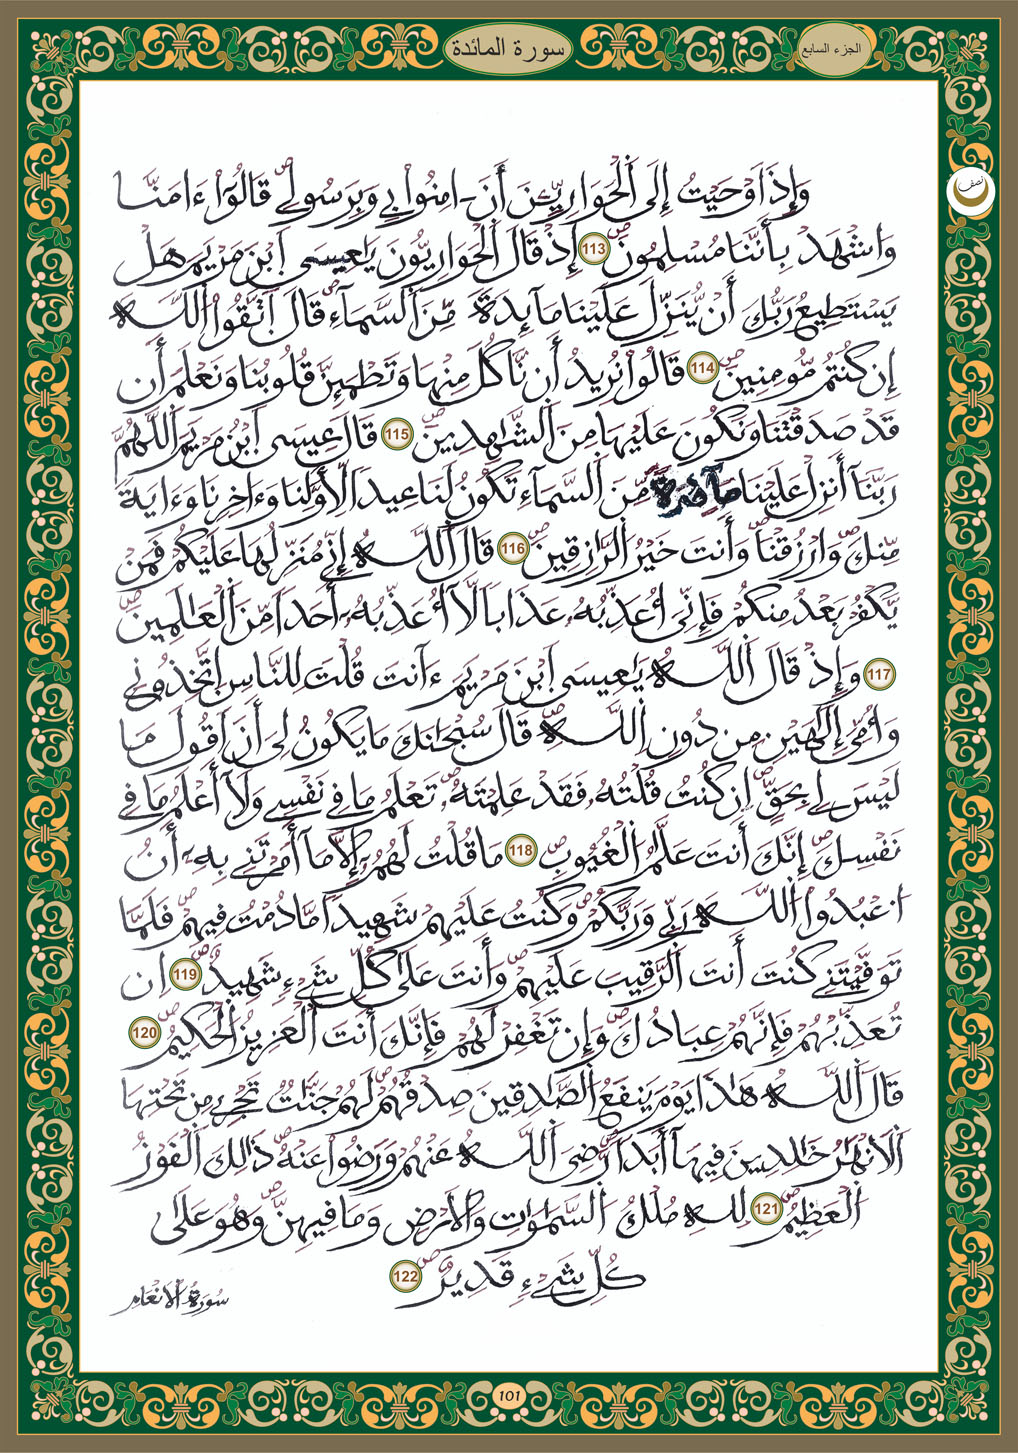 سورة المائدة
الجزء السابع
نصف
وَإِذَ اَوْحَيْتُ إِلَى اَ۬لْحَوَارِيِّـۧنَ أَنَ اٰمِنُواْ بِے وَبِرَسُولِےۖ قَالُوٓاْ ءَامَنَّا
وَاشْهَدْ بِأَنَّنَا مُسْلِمُونَۖ 113 إِذْ قَالَ اَ۬لْحَوَارِيُّونَ يَٰعِيسَى اَ۪بْنَ مَرْيَمَ هَلْ
يَسْتَطِيعُ رَبُّكَ أَنْ يُّنَزِّلَ عَلَيْنَا مَآئِدَةٗ مِّنَ اَ۬لسَّمَآءِۖ قَالَ اَ۪تَّقُواْ اُ۬للَّهَ
إِن كُنتُم مُّومِنِينَۖ 114 قَالُواْ نُرِيدُ أَن نَّاكُلَ مِنْهَا وَتَطْمَئِنَّ قُلُوبُنَا وَنَعْلَمَ أَن
قَدْ صَدَقْتَنَا وَنَكُونَ عَلَيْهَا مِنَ اَ۬لشَّٰهِدِينَۖ 115 قَالَ عِيسَى اَ۪بْنُ مَرْيَمَ اَ۬للَّهُمَّ
رَبَّنَآ أَنزِلْ عَلَيْنَا مَآئِدَةٗ مِّنَ اَ۬لسَّمَآءِ تَكُونُ لَنَا عِيداٗ لِّأَوَّلِنَا وَءَاخِرِنَا وَءَايَةٗ
مِّنكَۖ وَارْزُقْنَاۖ وَأَنتَ خَيْرُ اُ۬لرَّٰزِقِينَۖ 116 قَالَ اَ۬للَّهُ إِنِّے مُنَزِّلُهَا عَلَيْكُمْ فَمَنْ
يَّكْفُرْ بَعْدُ مِنكُمْ فَإِنِّيَ أُعَذِّبُهُۥ عَذَاباٗ لَّآ أُعَذِّبُهُۥٓ أَحَداٗ مِّنَ اَ۬لْعَٰلَمِينَۖ
117 وَإِذْ قَالَ اَ۬للَّهُ يَٰعِيسَى اَ۪بْنَ مَرْيَمَ ءَآنتَ قُلْتَ لِلنَّاسِ اِ۪تَّخِذُونِے
وَأُمِّيَ إِلَٰهَيْنِ مِن دُونِ اِ۬للَّهِۖ قَالَ سُبْحَٰنَكَ مَا يَكُونُ لِيَ أَنَ اَقُولَ مَا
لَيْسَ لِے بِحَقٍّۖ اِن كُنتُ قُلْتُهُۥ فَقَدْ عَلِمْتَهُۥۖ تَعْلَمُ مَا فِے نَفْسِے وَلَآ أَعْلَمُ مَا فِے
نَفْسِكَۖ إِنَّكَ أَنتَ عَلَّٰمُ اُ۬لْغُيُوبِۖ 118 مَا قُلْتُ لَهُمُۥٓ إِلَّا مَآ أَمَرْتَنِے بِهِۦٓ أَنُ
اُ۟عْبُدُواْ اُ۬للَّهَ رَبِّے وَرَبَّكُمْۖ وَكُنتُ عَلَيْهِمْ شَهِيداٗ مَّا دُمْتُ فِيهِمْ فَلَمَّا
تَوَفَّيْتَنِے كُنتَ أَنتَ اَ۬لرَّقِيبَ عَلَيْهِمْۖ وَأَنتَ عَلَىٰ كُلِّ شَےْءٖ شَهِيدٌۖ 119 اِن
تُعَذِّبْهُمْ فَإِنَّهُمْ عِبَادُكَۖ وَإِن تَغْفِرْ لَهُمْ فَإِنَّكَ أَنتَ اَ۬لْعَزِيزُ اُ۬لْحَكِيمُۖ 120
قَالَ اَ۬للَّهُ هَٰذَا يَوْمَ يَنفَعُ اُ۬لصَّٰدِقِينَ صِدْقُهُمْۖ لَهُمْ جَنَّٰتٞ تَجْرِے مِن تَحْتِهَا
اَ۬لَانْهَٰرُ خَٰلِدِينَ فِيهَآ أَبَداٗۖ رَّضِيَ اَ۬للَّهُ عَنْهُمْ وَرَضُواْ عَنْهُۖ ذَٰلِكَ اَ۬لْفَوْزُ
اُ۬لْعَظِيمُۖ 121 لِلهِ مُلْكُ اُ۬لسَّمَٰوَٰتِ وَالَارْضِ وَمَا فِيهِنَّۖ وَهُوَ عَلَىٰ
كُلِّ شَےْءٖ قَدِيرٌۖ 122
سُورَةُ اُ۬لَانْعَامِ
101